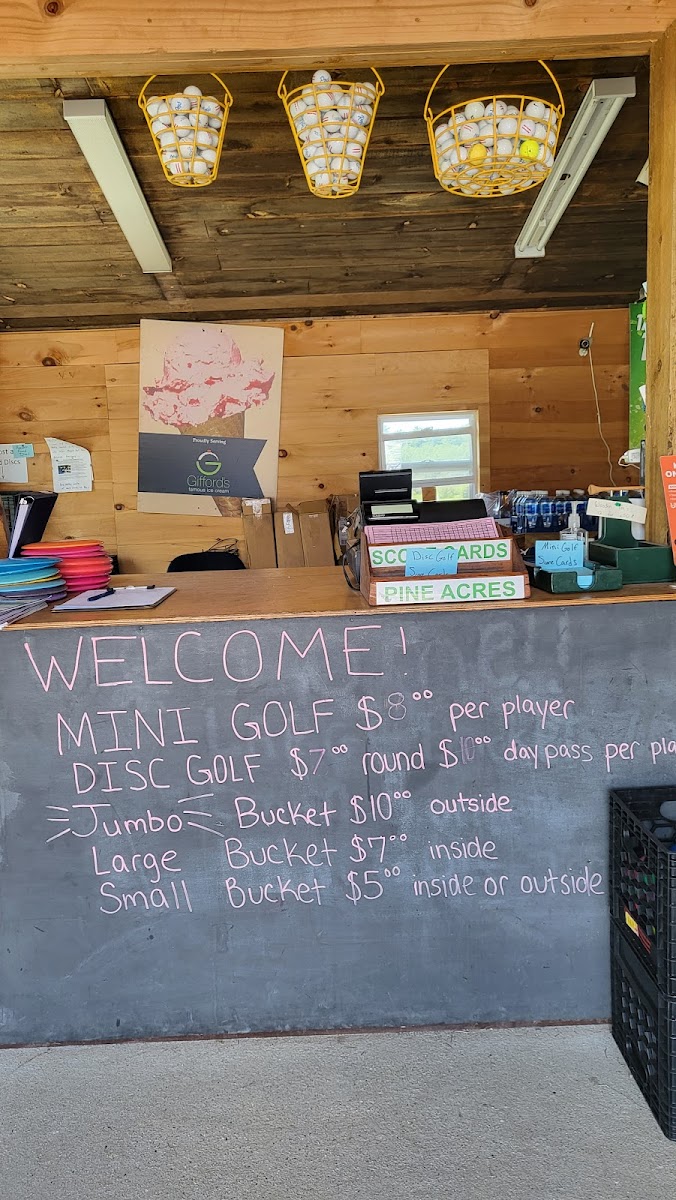 Proudly Serving
Gifford's
famous ice cream
SCO
ARDS
Disc Golf
Score Cards
PINE ACRES
Mini Golf
Score Cards
WELCOME!
MINI GOLF $8.00 per player
DISC GOLF $7.00 round $10.00 day pass per pla
Jumbo Bucket $10.00 outside
Large Bucket $7.00 inside
Small Bucket $5.00 inside or outside